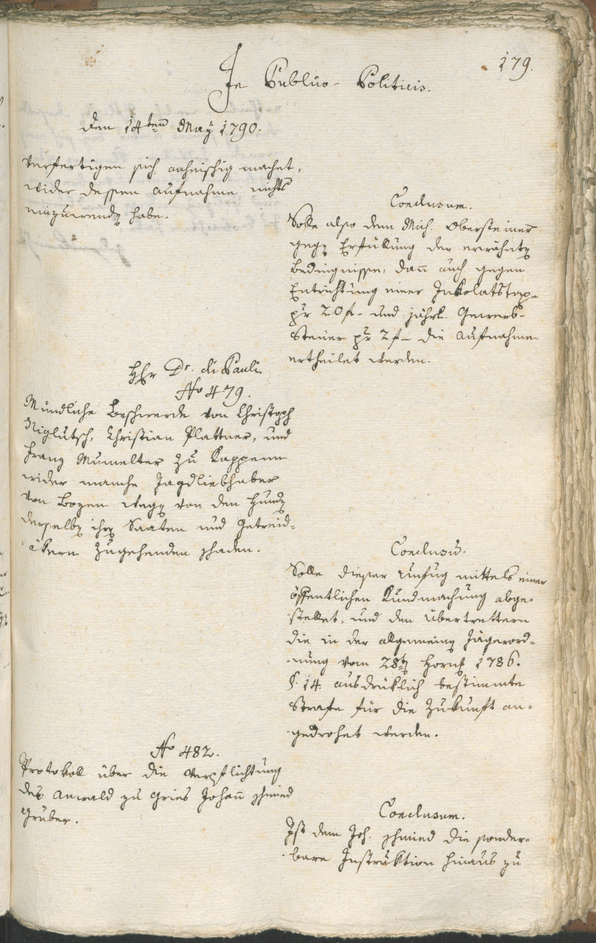 179.
In Publico-Politicis.
Den 14ten May 1790.
verfertigen sich anheischig machet,
wider dessen Aufnahme nichts
einzuwenden habe.
Conclusum.
Solle also dem Mich. Obersteiner
gegen Erfülung der erwähnten
Bedingnisse, dann auch gegen
Entrichtung einer Inkolatstax
pr 20 f– und jährl. Gewerb-
steuer pr 2 f– die Aufnahme
ertheilet werden.
Hhr Dr. di Pauli
No 479.
Mündliche Beschwerde von Christoph
Niglutsch, Christian Plattner, und
Franz Mumelter zu
wider manche Jagdliebhaber
von Bozen wegen von den Hunden
derselben ihren Saaten und Getreid-
äkern zugehenden Schaden.
Conclusum.
Solle dieser Unfug mittels einer
öffentlichen Kundmachung abge-
stellet, und den Übertrettern
die in der allgemeinen Jägerord-
nung vom 28ten Hornung 1786.
§. 14 ausdrüklich bestimmte
Strafe für die Zukunft an-
gedrohet werden.
No 482.
Protokoll über die Verpflichtung
des Anwald zu Gries Johann Schmied
Gruber.
Conclusum.
Ist dem Joh. Schmied die sonder-
bare Instruktion hinaus zu